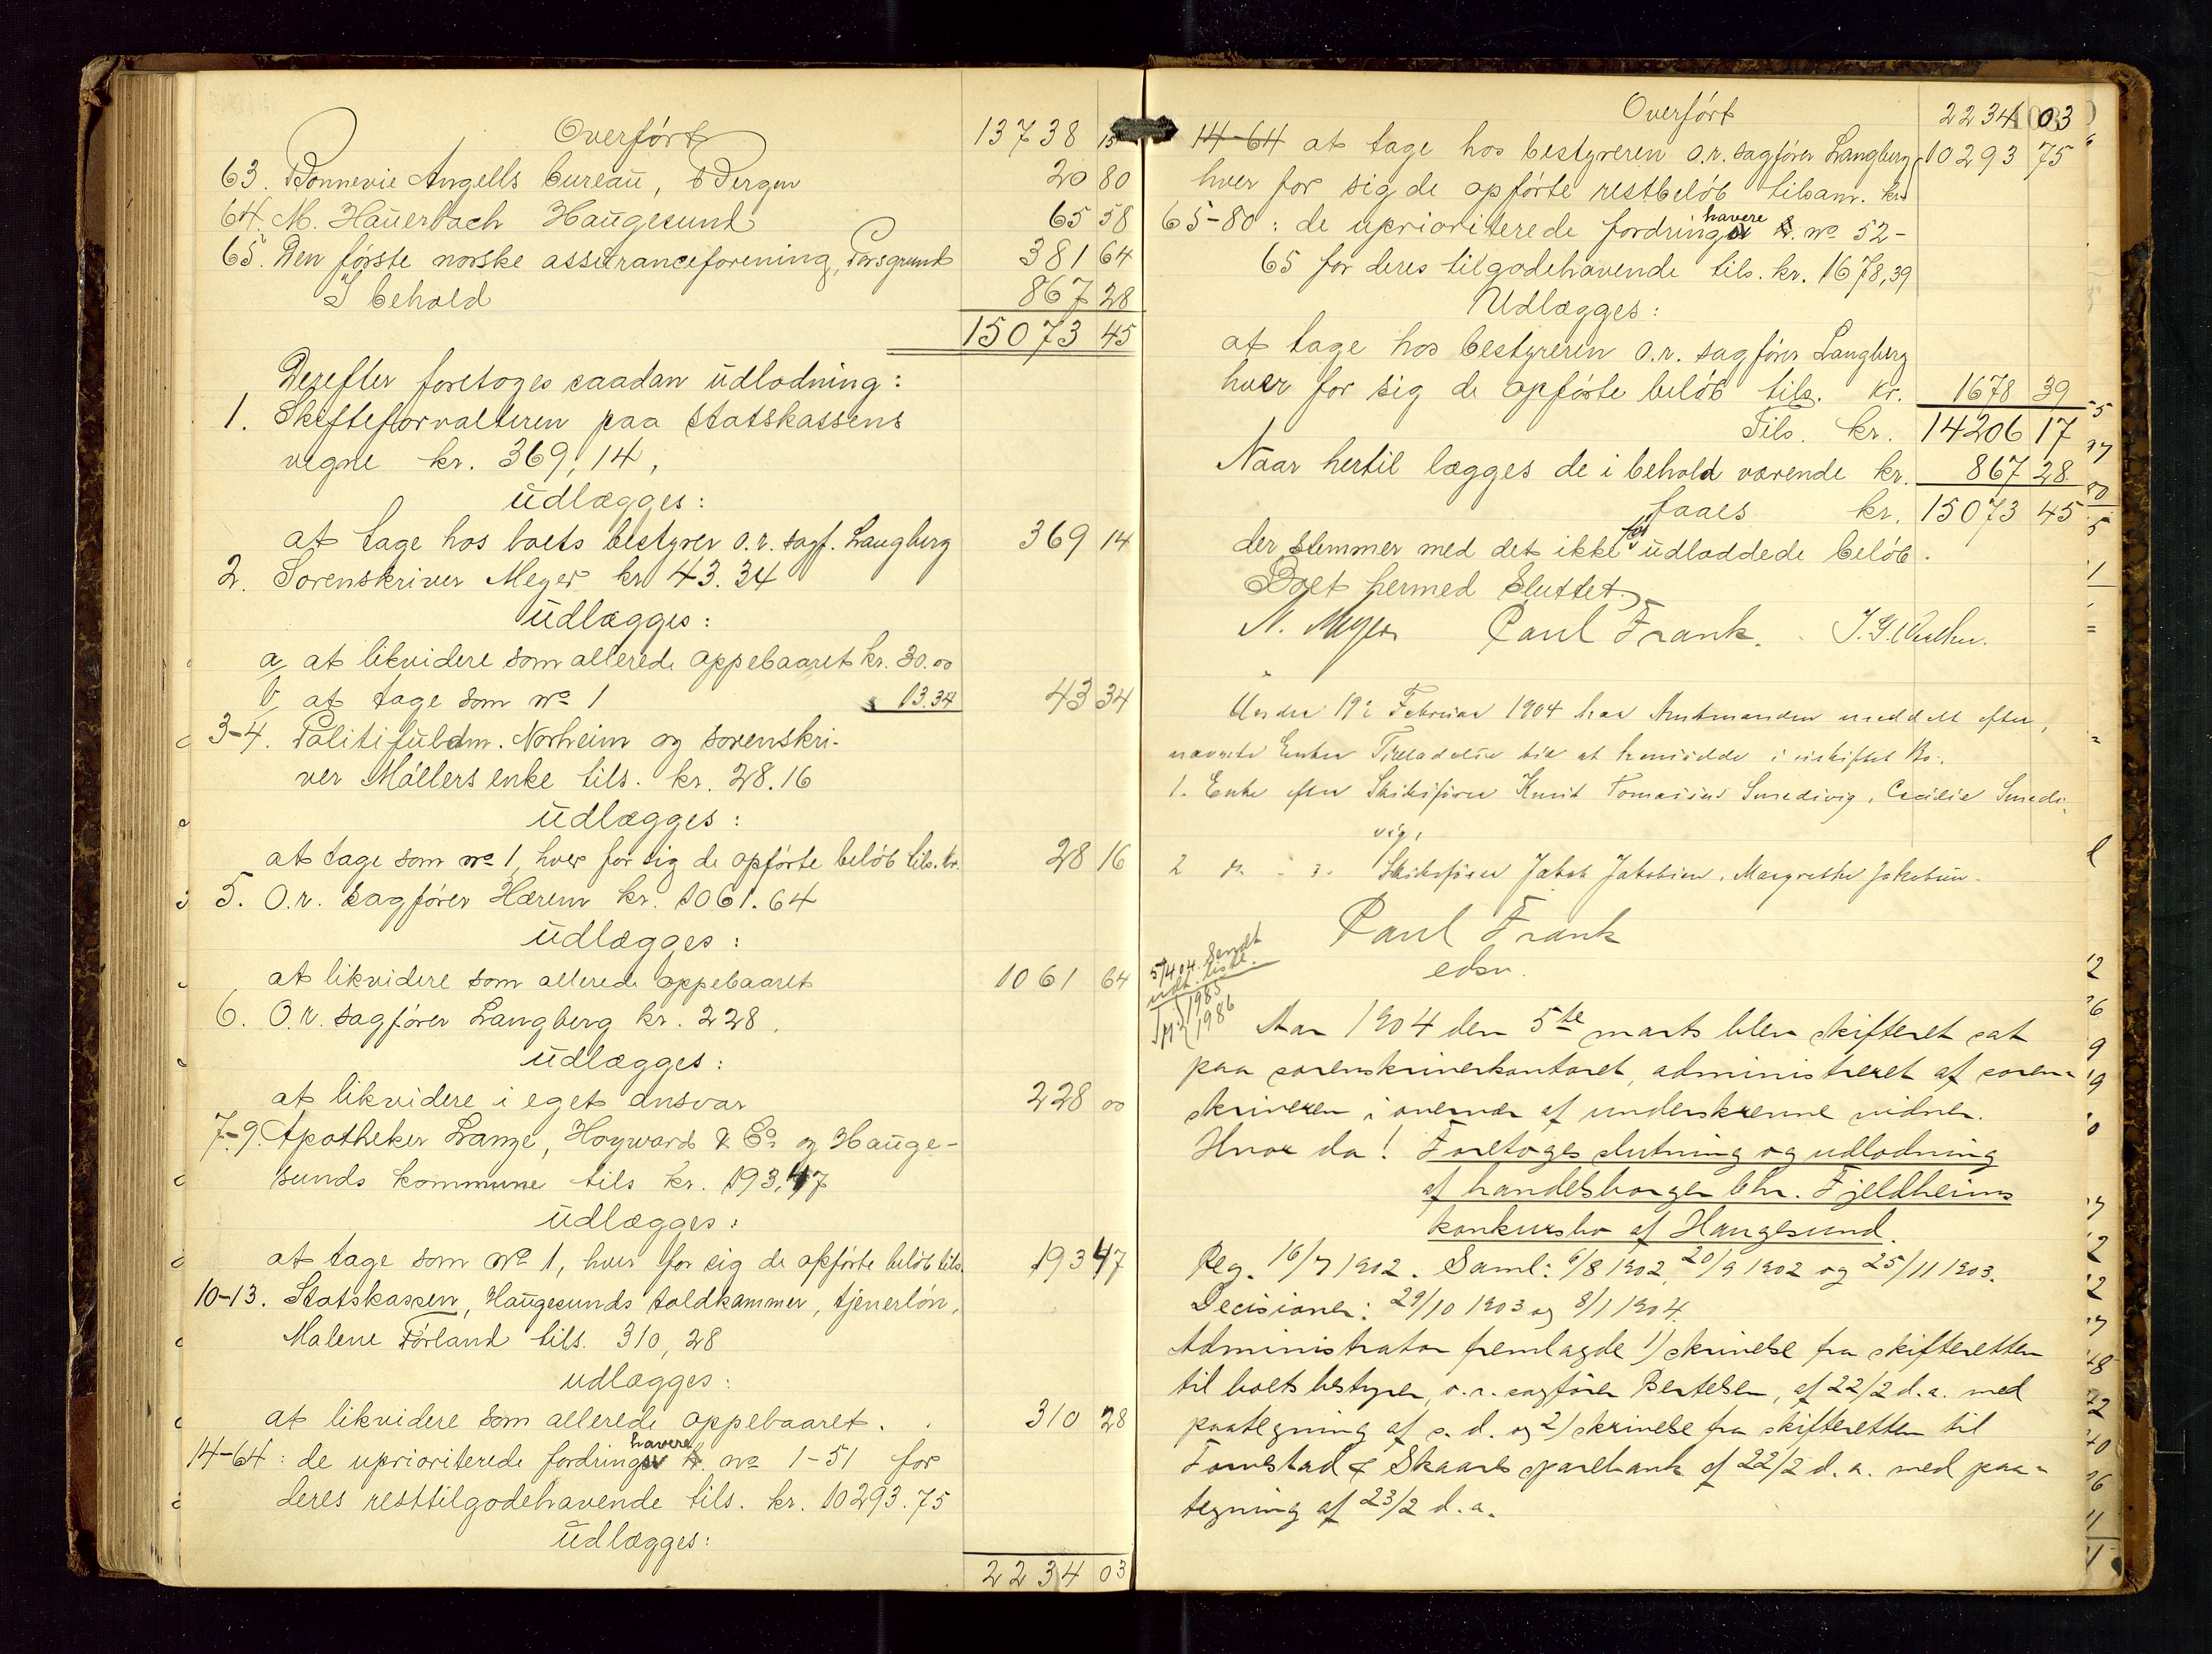 Overført 13738 15
63. Bonnevie Angells bureau, Bergen 20 80
64. M. Hauerbach Haugesund 65 58
65. Den første norske assuranceforening, Porsgrund 381 64
I behold 867 28
15073 45
Derefter foretoges saadan udlodning:
1. Skifteforvalteren paa statskassens
vegne kr. 369,14,
udlægges:
at tage hos boets bestyrer o.r. sagf. Langberg 369 14
2. Sorenskriver Meyer kr 43.34
udlægges:
a, at likvidere som allerede oppebaaret kr. 30.00
b, at tage som no 1 " 13.34 43 34
3-4. Politifuldm. Norheim og sorenskri-
ver Møllers enke tils. kr. 28.16
udlægges:
at tage som no 1, hver for sig de opførte beløb tils. kr. 28 16
5. O.r. sagfører Hærem kr. 1061.64
udlægges:
at likvidere som allerede oppebaaret 1061 64
6. O.r. sagfører Langberg kr. 228.
udlægges:
at likvidere i eget ansvar 228 00
7-9. Apotheker Lange, Hoyward & Co. og Hauge-
sunds kommune tils kr. 193,47
udlægges:
at tage som No 1, hver for sig de opførte beløb tils. 193 47
10-13. Statskassen, Haugesunds toldkammer, tjenerløn,
Malene Førland tils. 310,28
udlægges:
at likvidere som allerede oppebaaret. 310 28
14-64: de uprioriterede fordringshavere no 1-51 for
deres resttilgodehavende tils. kr. 10293.75
udlægges:
2234 03
Overført 2234 03
14-64 at tage hos bestyreren o.r. sagfører Langberg 10293 75
hver for sig de opførte restbeløb tilsam. kr
65-80: de uprioriterede fordringshavere no 52-
65 for deres tilgodehavende tils. kr. 1678,39
Udlægges:
at tage hos bestyreren o.r. sagfører Langberg
hver for sig de opførte beløb tils. kr. 1678 39
Tils. kr. 14206 17
Naar hertil lægges de i behold værende kr. 867 28
faaes kr. 15073 45
der stemmer med det ikke før udloddede beløb.
Boet hermed sluttet.
N. Meyer Paul Frank.
Under 19de Februar 1904 har Amtmanden meddelt efter-
nævnte Enker Tilladelse til at hensidde i uskiftet Bo:
1. Enke efter Skibsfører Knut Tomasius Smedsvig, Cecilie Smeds-
vig,
2 do - " - Skibsfører Jakob Jakobsen, Margrethe Jakobsen.
Paul Frank
edsv.
5/4 04 Sendt
udt. liste.
1985
1986
Aar 1904 den 5te marts blev skifteret sat
paa sorenskriverkontoret, administreret af soren-
skriveren i overvær af underskrevne vidner.
Hvor da! Foretoges slutning og udlodning
af handelsborger Chr. Fjeldheims
konkursbo af Haugesund.
Reg. 16/7 1902. Saml: 6/8 1902, 20/9 1902 og 25/11 1903.
Decisioner: 29/10 1903 og 8/1 1904.
Administrator fremlagde 1) skrivelse fra skifteretten
til boets bestyrer, o.r. sagfører Bertelsen, af 22/2 d.a. med
paategning af s.d. og 2) skrivelse fra skifteretten til
Torvestad & Skaare sparebank af 22/2 d.a. med paa-
tegning af 23/2 d.a.